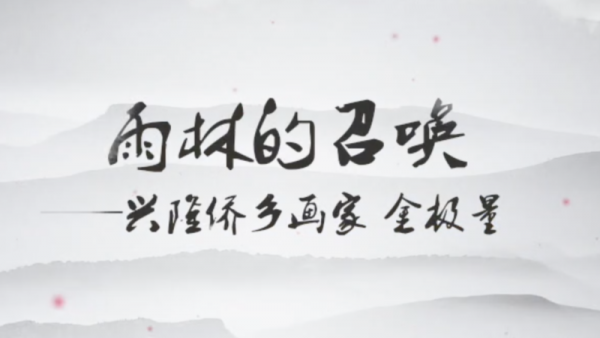 雨林的召唤
——兴隆侨乡画家 金极量